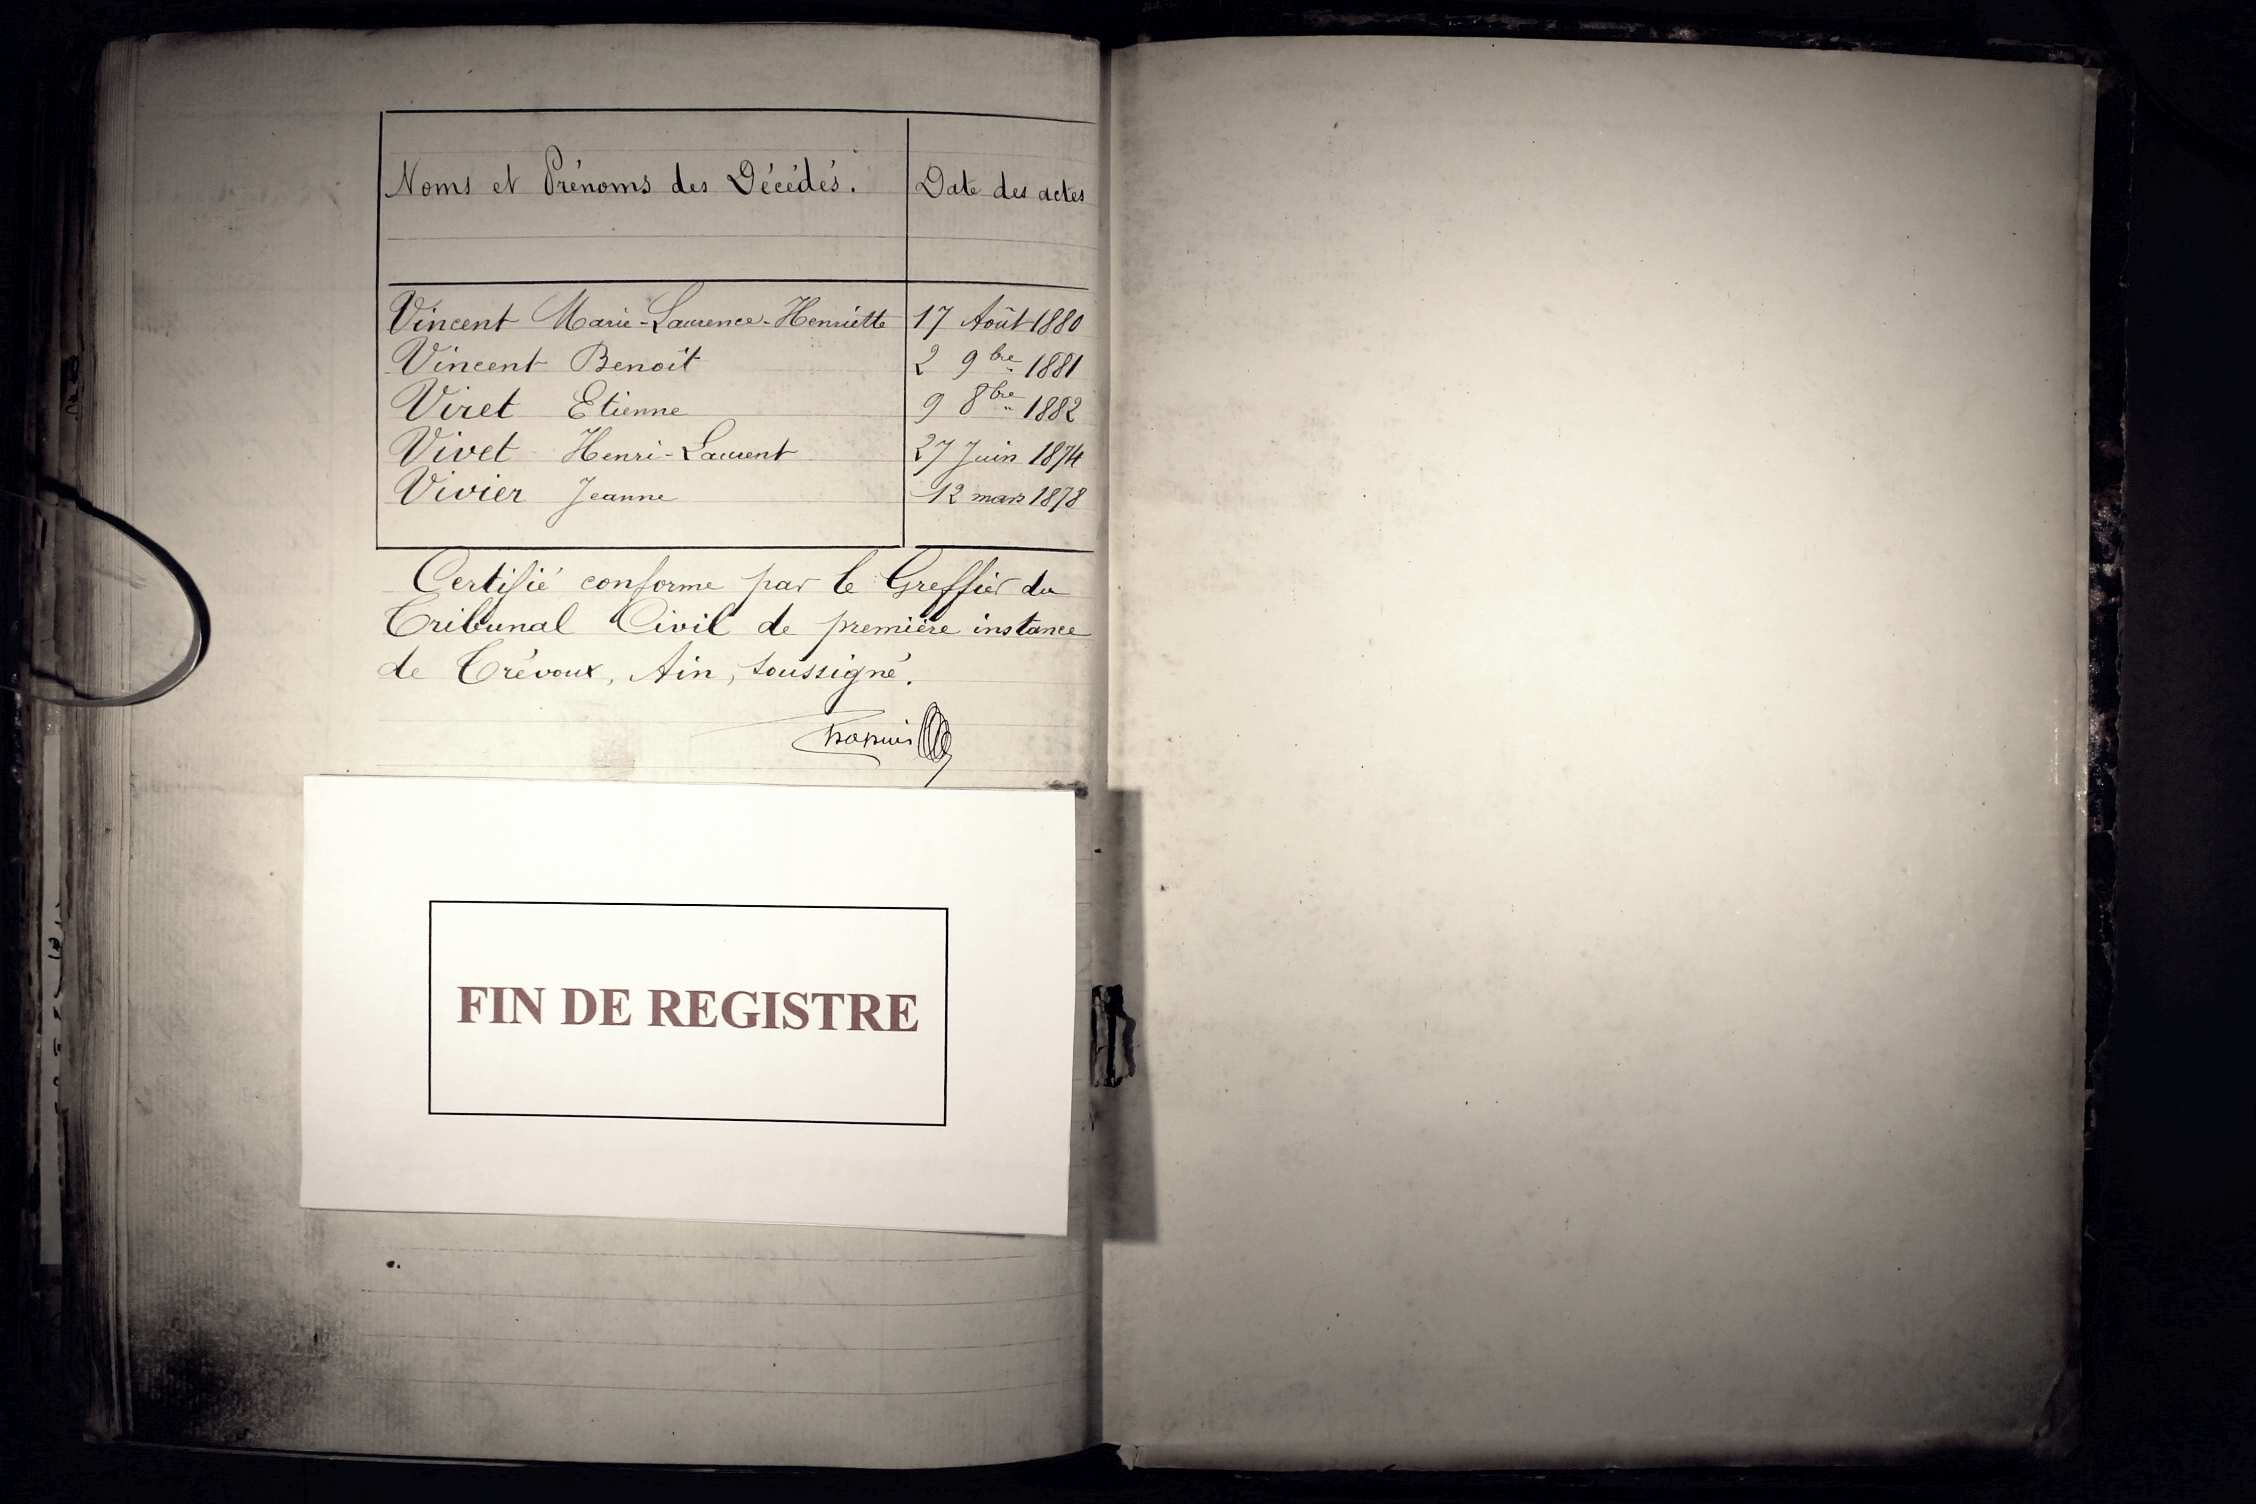 Noms et Prénoms des Décédés. Date des actes
Vincent Marie-Laurence-Henriette 17 Août 1880
Vincent Benoît 2 9bre 1881
Viret Etienne 9 8bre 1882
Vivet Henri-Laurent 27 Juin 1874
Vivier Jeanne 12 mars 1878
Certifié conforme par le Greffier du
Tribunal Civil de première instance
de Trévoux, Ain, soussigné.
FIN DE REGISTRE